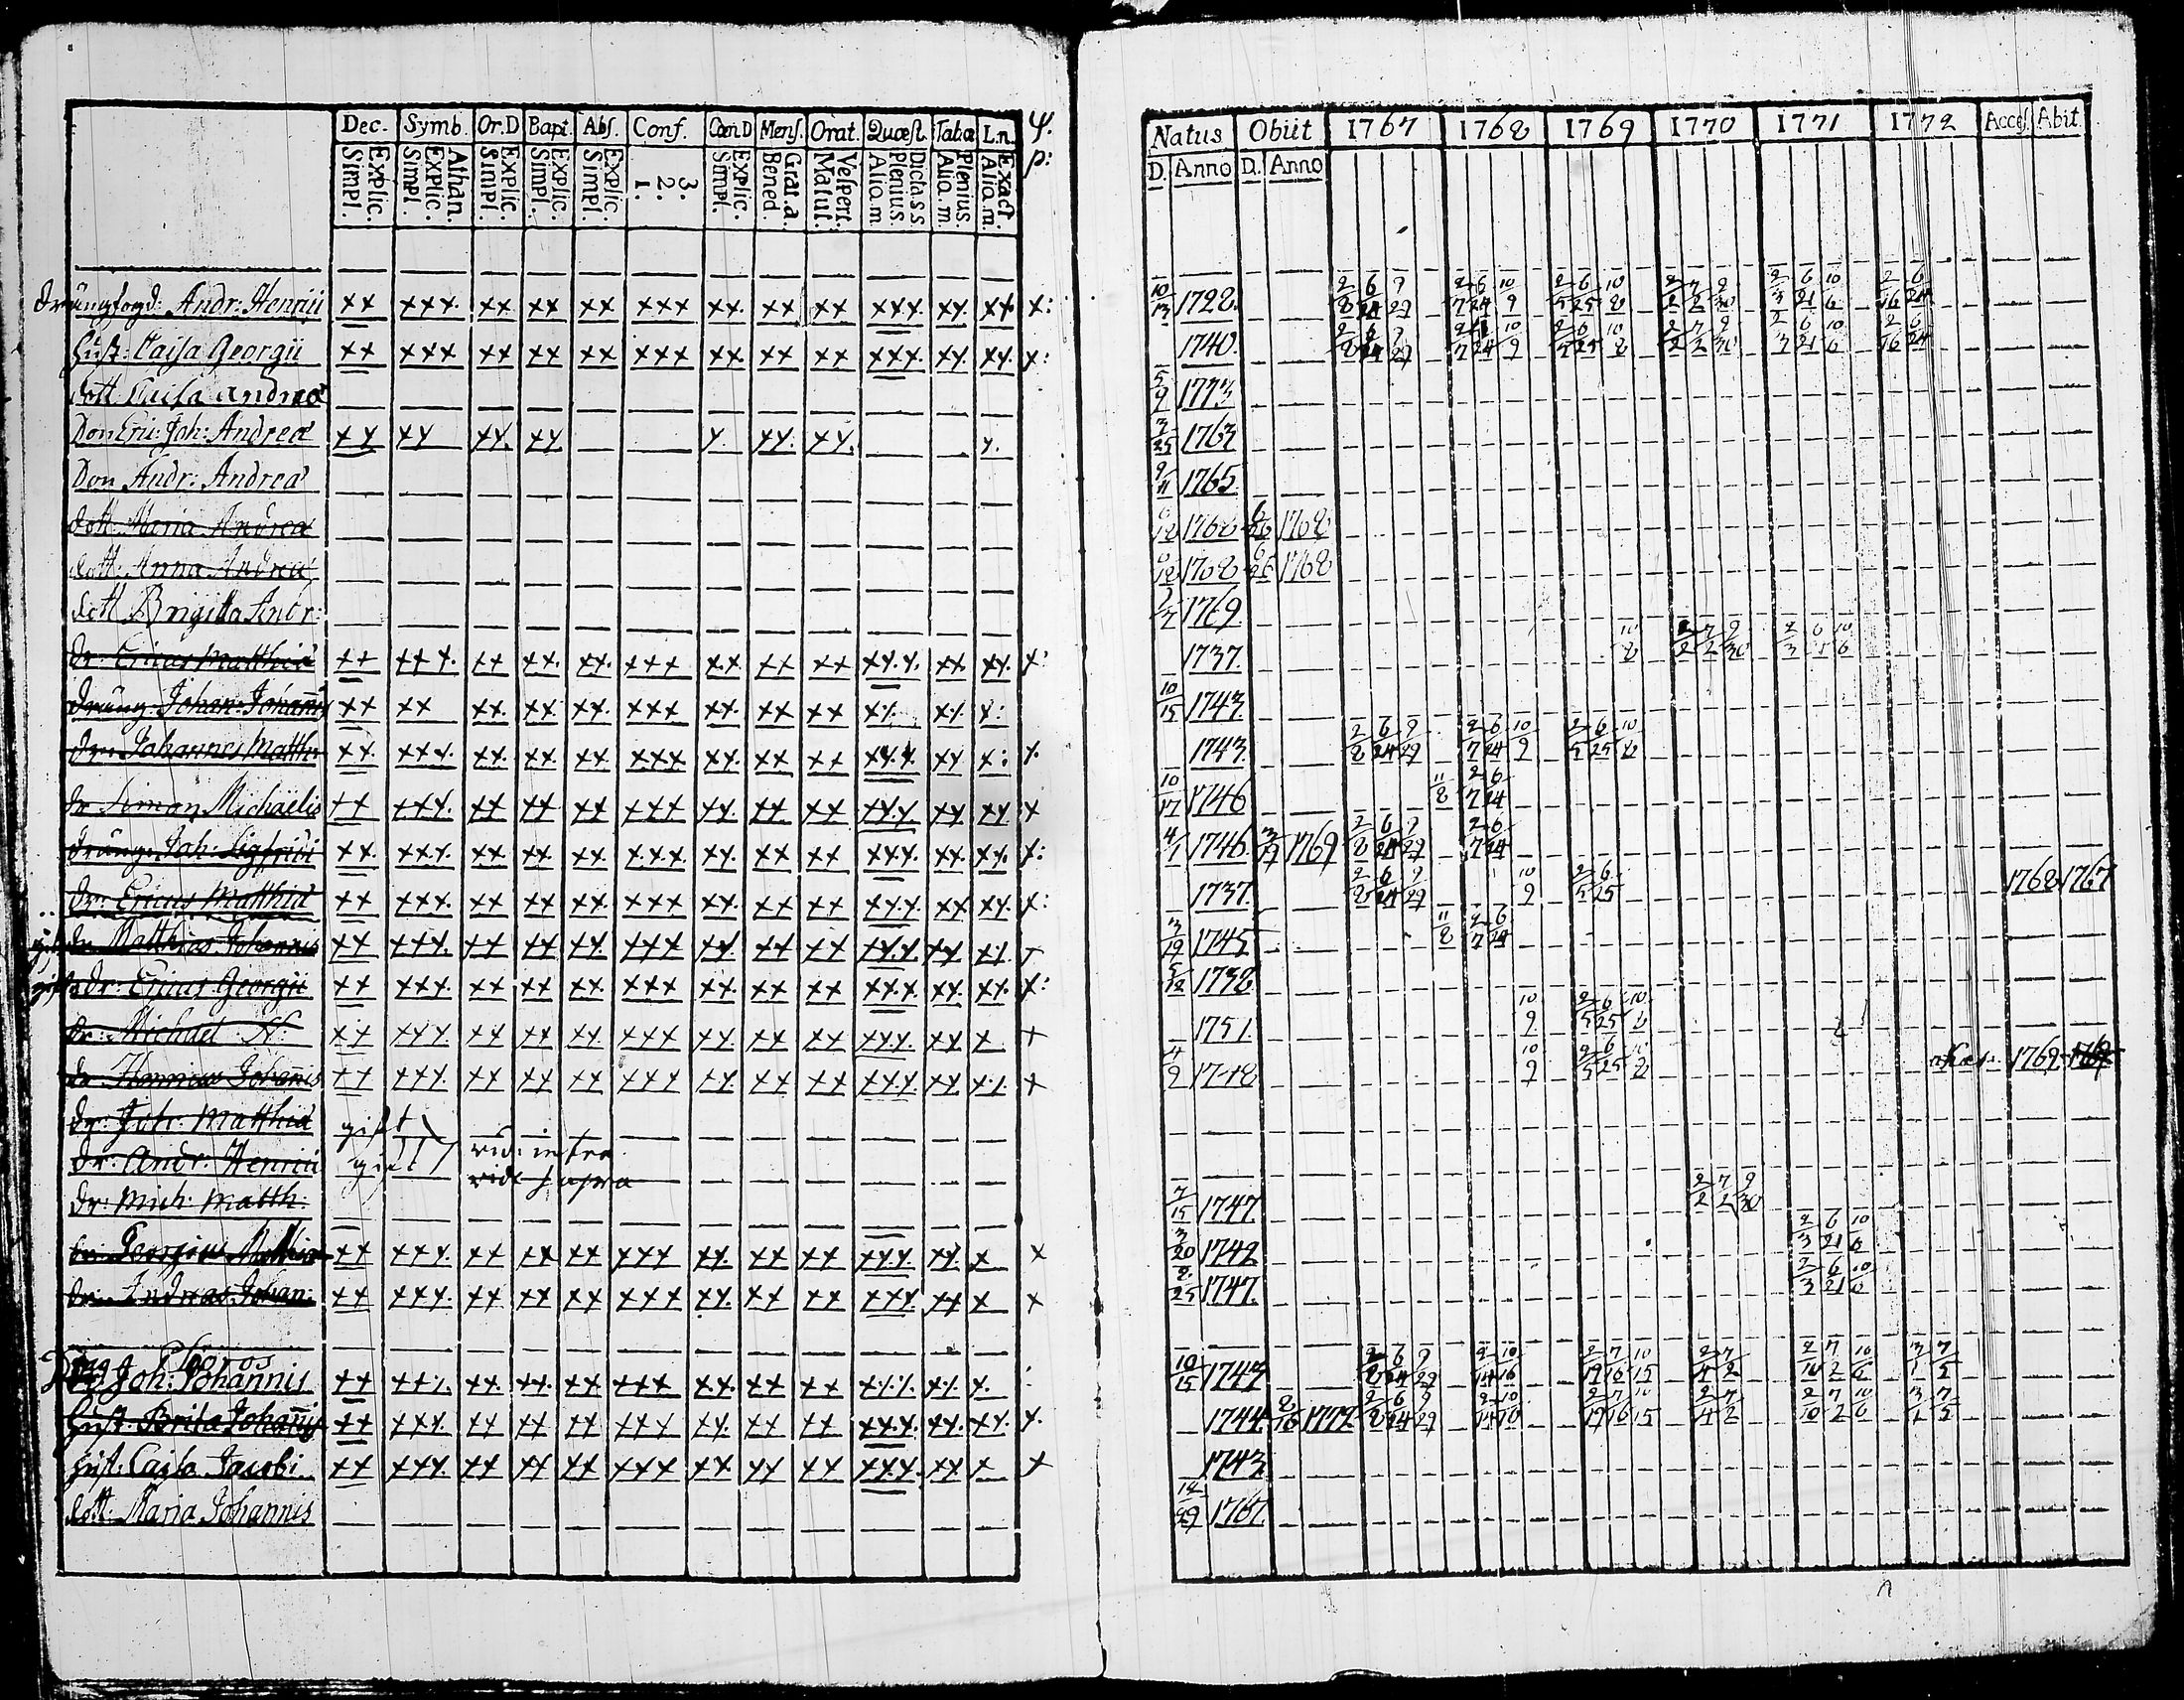 Dec. Symb. Or.D Bapt. Abs. Conf. Cœn.D Mens. Orat. Quæst. Tabæ L.n. Ψ.
Explic. Simpl. Athan. Explic. Simpl. Explic. Simpl. Explic. Simpl. Explic. Simpl. 3. 2. 1. Explic. Simpl. Grat. a. Bened. Vespert. Matut. Dicta s s Plenius. Alio. m Plenius. Alia. m. Exact Alia. m. p:
Natus Obiit 1767 1768 1769 1770 1771 1772 Acces. Abit.
D. Anno D. Anno
Andr: Henrici xx xxx. xx xx xx xxx xx. xx xx xxx. xx. xx. x: 10/13 1728. 2/8 6/24 9/29 2/7 6/24 10/9 2/5 6/25 10/8 2/2 7/2 9/30 2/3 6/21 10/6 2/16 6/24
Hust: Caisa Georgii xx xxx xx xx xx xxx xx. xx xx xxx. xx. xx. x: 1740. 2/8 6/24 9/29 2/7 6/24 10/9 2/5 6/25 10/8 2/2 7/2 9/30 2/3 6/21 10/6 2/16 6/24
dott. Caisa Andreæ 5/9 1773
Son Eric: Joh: Andreæ xx xx xx. xx x xx. xx. x. 3/25 1763
Son Andr: Andreæ 9/11 1765.
dott. Maria Andreæ 1768 6/26 1768
dott: Anna Andreæ 1768 6/26 1768
dott Brigitta Andr: 1769.
dr: Ericus Matthiæ xx xxx. xx xx. xx. xxx xx xx xx xx.x. xx xx. x: 1737. 10/8 2/2 7/2 9/30 2/3 10/6
dräng: Johan: Johannis xx xx xx. xx. xx. xxx xx. xx xx xx. xx. x: 10/15 1743.
dr: Johannes Matth: xx. xxx. xx. xx. xx. xxx xx. xx xx xx.x. xx x: x. 1743. 2/8 6/24 9/29 2/7 6/24 10/9 2/5 6/25 10/8
dr Simon Michaelis xx xxx. xx xx xx xxx xx. xx xx xx.x xx xx. x 10/17 1746 11/8 2/7 6/24
dräng: Joh: Sigfridi xx. xx.x. xx. xx. xx. x.x.x xx. xx xx xxx. xx. xx. x: 4/1 1746. 3/19 1769 2/8 6/24 9/29 2/7 6/24
dr: Ericus Matthiæ xx xxx. xx. xx xx. xxx xx. xx xx xx.x. xx xx. x: 1737. 2/8 6/24 9/29 10/9 2/5 6/25 1768 1767
gift dr Matthias Johannis xx xxx. xx xx xx. xxx xx. xx xx xx.x xx x. x 3/19 1745 11/8 2/7 6/24
gift dr: Ericus Georgii xx xxx. xx xx xx. xxx xx. xx xx xx.x xx. xx. x: 5/12 1732
dr: Michael N: xx xxx xx xx xx. xxx xx. xx xx xx.x. xx x x 1751. 10/9 2/5 6/25 10/8
dr Henricus Johannis xx xxx. xx xx xx xxx xx. xx xx xxx. xx x. x 4/9 1748 10/9 2/5 6/25 10/8 1769 1769
dr: Joh: Matthiæ gift
dr: Andr: Henrici gift vid: infra
dr: Mich: Matth: vide supra 7/15 1747. 2/2 7/2 9/30
dr: Georgius Matthiæ xx xxx. xx xx xx xxx xx. xx xx xx.x. xx. x x 3/20 1742 2/3 6/21 10/6
dr: Andreas Johan: xx xxx. xx xx xx xxx xx. xx xx xxx. xx x x 2/25 1747. 2/3 6/21 10/6
Joh: Johannis xx xx. xx. xx. xx. xxx xx. xx xx x.x. x. x. 10/15 1744 2/8 6/24 9/29 2/14 10/16 2/19 7/16 10/15 2/4 7/2 2/10 7/2 10/6 3/1 7/5
Hust. Brita Johannis xx xxx. xx xx xx xxx xx. xx xx xx.x. xx. xx. x. 1744. 8/16 1772 2/8 6/24 9/29 2/14 10/16 2/19 7/16 10/15 2/4 7/2 2/10 7/2 10/6 3/1 7/5
Hust: Caisa Jacobi xx xxx. xx xx xx xxx xx xx xx xxx. xx x x 1743
dott: Maria Johannis 12/29 1767.